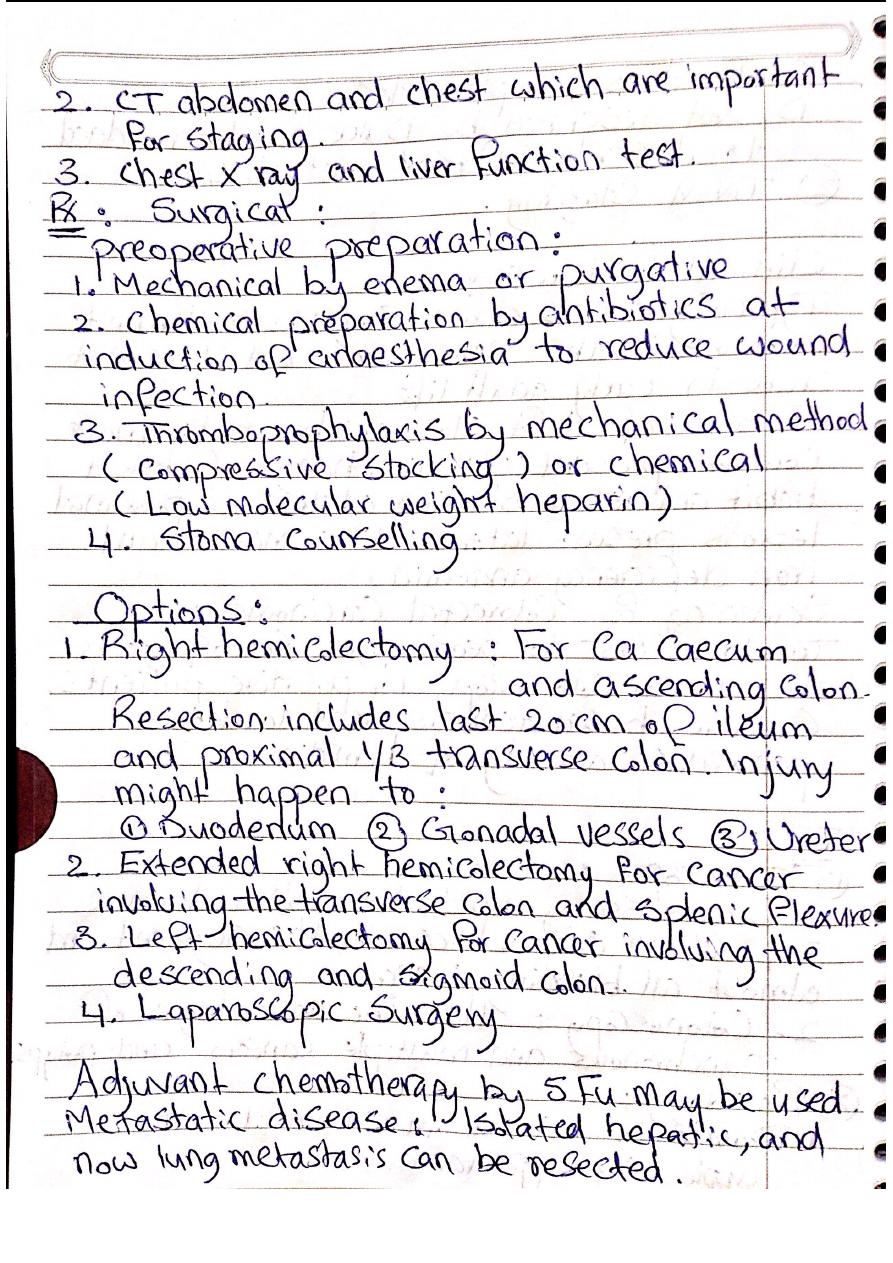 2. CT abdomen and chest which are important
for staging.
3. Chest x ray and liver function test.
Rx : Surgical :
preoperative preparation :
1. Mechanical by enema or purgative
2. Chemical preparation by antibiotics at
induction of anaesthesia to reduce wound
infection
3. Thromboprophylaxis by mechanical method
( Compressive stocking ) or chemical
( Low molecular weight heparin )
4. Stoma Counselling.
Options :
1. Right hemicolectomy : For Ca Caecum
and ascending colon.
Resection includes last 20 cm of ileum
and proximal 1/3 transverse colon. Injury
might happen to :
① Duodenum ② Gonadal vessels ③ Ureter
2. Extended right hemicolectomy for cancer
involving the transverse colon and splenic flexure.
3. Left hemicolectomy for cancer involving the
descending and sigmoid colon.
4. Laparoscopic Surgery
Adjuvant chemotherapy by 5 Fu may be used.
Metastatic disease : Isolated hepatic, and
now lung metastasis can be resected.